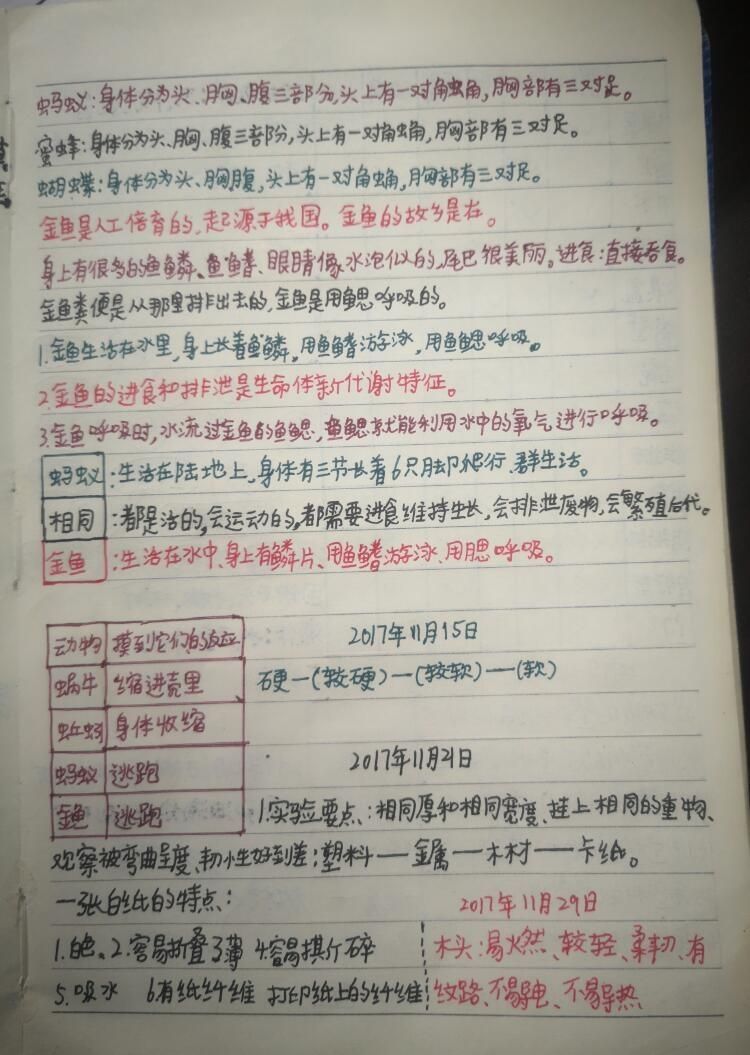 蚂蚁:身体分为头、胸、腹三部分,头上有一对角触角,胸部有三对足。
蜜蜂:身体分为头、胸、腹三部分,头上有一对角触角,胸部有三对足。
蝴蝶:身体分为头、胸腹,头上有一对角触角,胸部有三对足。
金鱼是人工培育的,起源于我国。金鱼的故乡是在。
身上有很多的鱼鳞、鱼鳍、眼睛像水泡似的,尾巴很美丽。进食:直接吞食。
金鱼粪便是从那里排出去的,金鱼是用鳃呼吸的。
1.金鱼生活在水里,身上长着鱼鳞,用鱼鳍游泳,用鱼鳃呼吸。
2.金鱼的进食和排泄是生命体新代谢特征。
3.金鱼呼吸时,水流过金鱼的鱼鳃,鱼鳃就能利用水中的氧气进行呼吸。
蚂蚁:生活在陆地上、身体有三节长着6只脚爬行、群生活。
相同:都是活的,会运动的,都需要进食维持生长,会排泄废物,会繁殖后代。
金鱼:生活在水中、身上有鳞片、用鱼鳍游泳、用腮呼吸。
动物 摸到它们的反应 2017年11月15日
蜗牛 缩进壳里 硬—(较硬)—(较软)—(软)
蚯蚓 身体收缩
蚂蚁 逃跑 2017年11月21日
金鱼 逃跑 1.实验要点:相同厚和相同宽度、挂上相同的重物、
观察被弯曲程度、韧性好到差:塑料——金属——木材——卡纸。
一张白纸的特点: 2017年11月29日
1.白色、2.容易折叠 3薄 4.容易撕碎 木头:易火燃、较轻、柔韧、有
5.吸水 6.有纸纤维 打印纸上的纤维 纹路、不易导电、不易导热